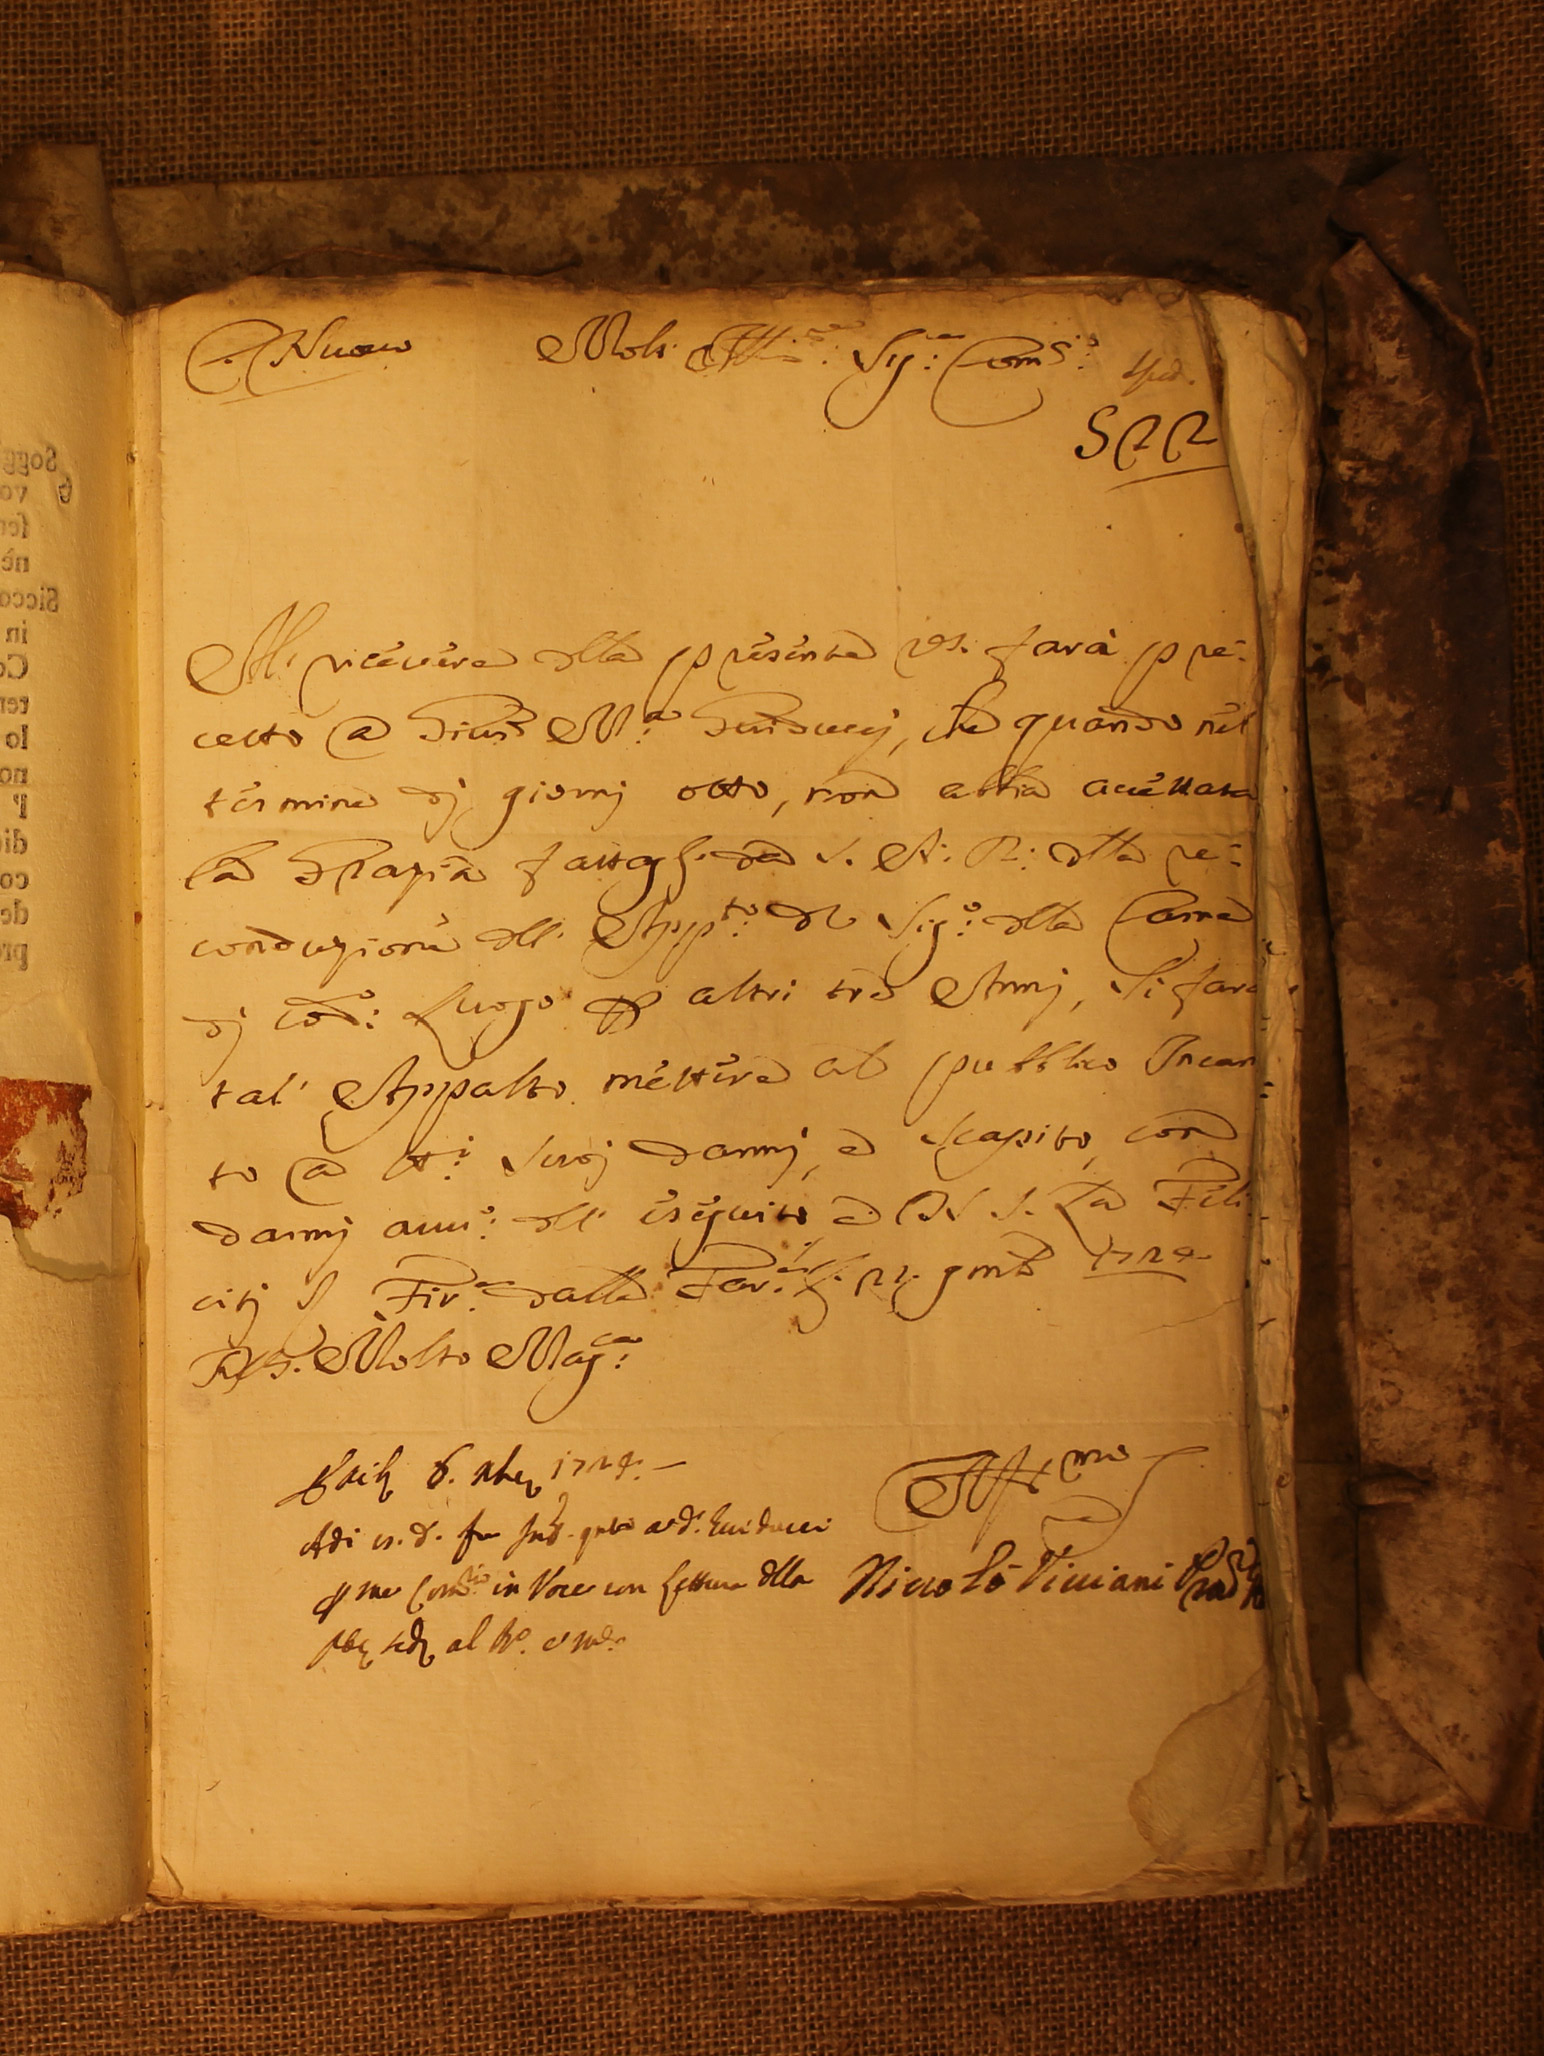 C. Nuovo Molt. Ill.re Sig.re Com.rio
522
Al ricevere dlla presente VS. farà pre-
cetto a Giuse M.a Guiducci, che quando nel
termine dj giornj otto, non abbia accettata
la Grazia fattagl. da S. A. R. dlla re-
conduzione dll' App.to dl Sig.o dlla Carne
dj cod.o Luogo p altri tre Annj, si fara
tal' Appalto mettere al pubblico Incan
to a tt.i suoj dannj, e scapito, con
darmj avvi.o dll' eseguito e N. S. La Feli
citj Fir.e dalla 1724
VS. Molto Mag.ca
6. 1724. —
Adi d. fu Guiducci
p me Com. in Voce con lettura dlla
al
Aff.mo
Niccolò Viviani
Sogg
vo
ser
nè
Sicco
in
Co
ter
lo
no
l'
di
co
de
pr